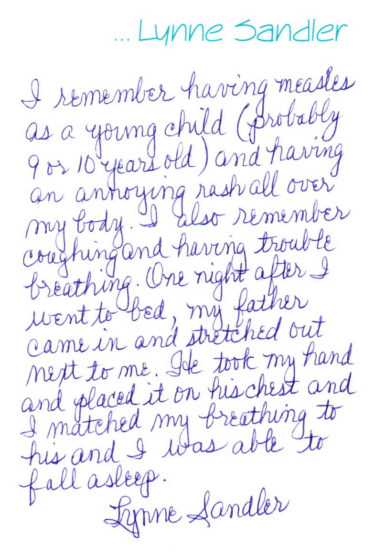 ... Lynne Sandler
I remember having measles
as a young child (probably
9 or 10 years old) and having
an annoying rash all over
my body. I also remember
coughing and having trouble
breathing. One night after I
went to bed, my father
came in and stretched out
next to me. He took my hand
and placed it on his chest and
I matched my breathing to
his and I was able to
fall asleep.
Lynne Sandler